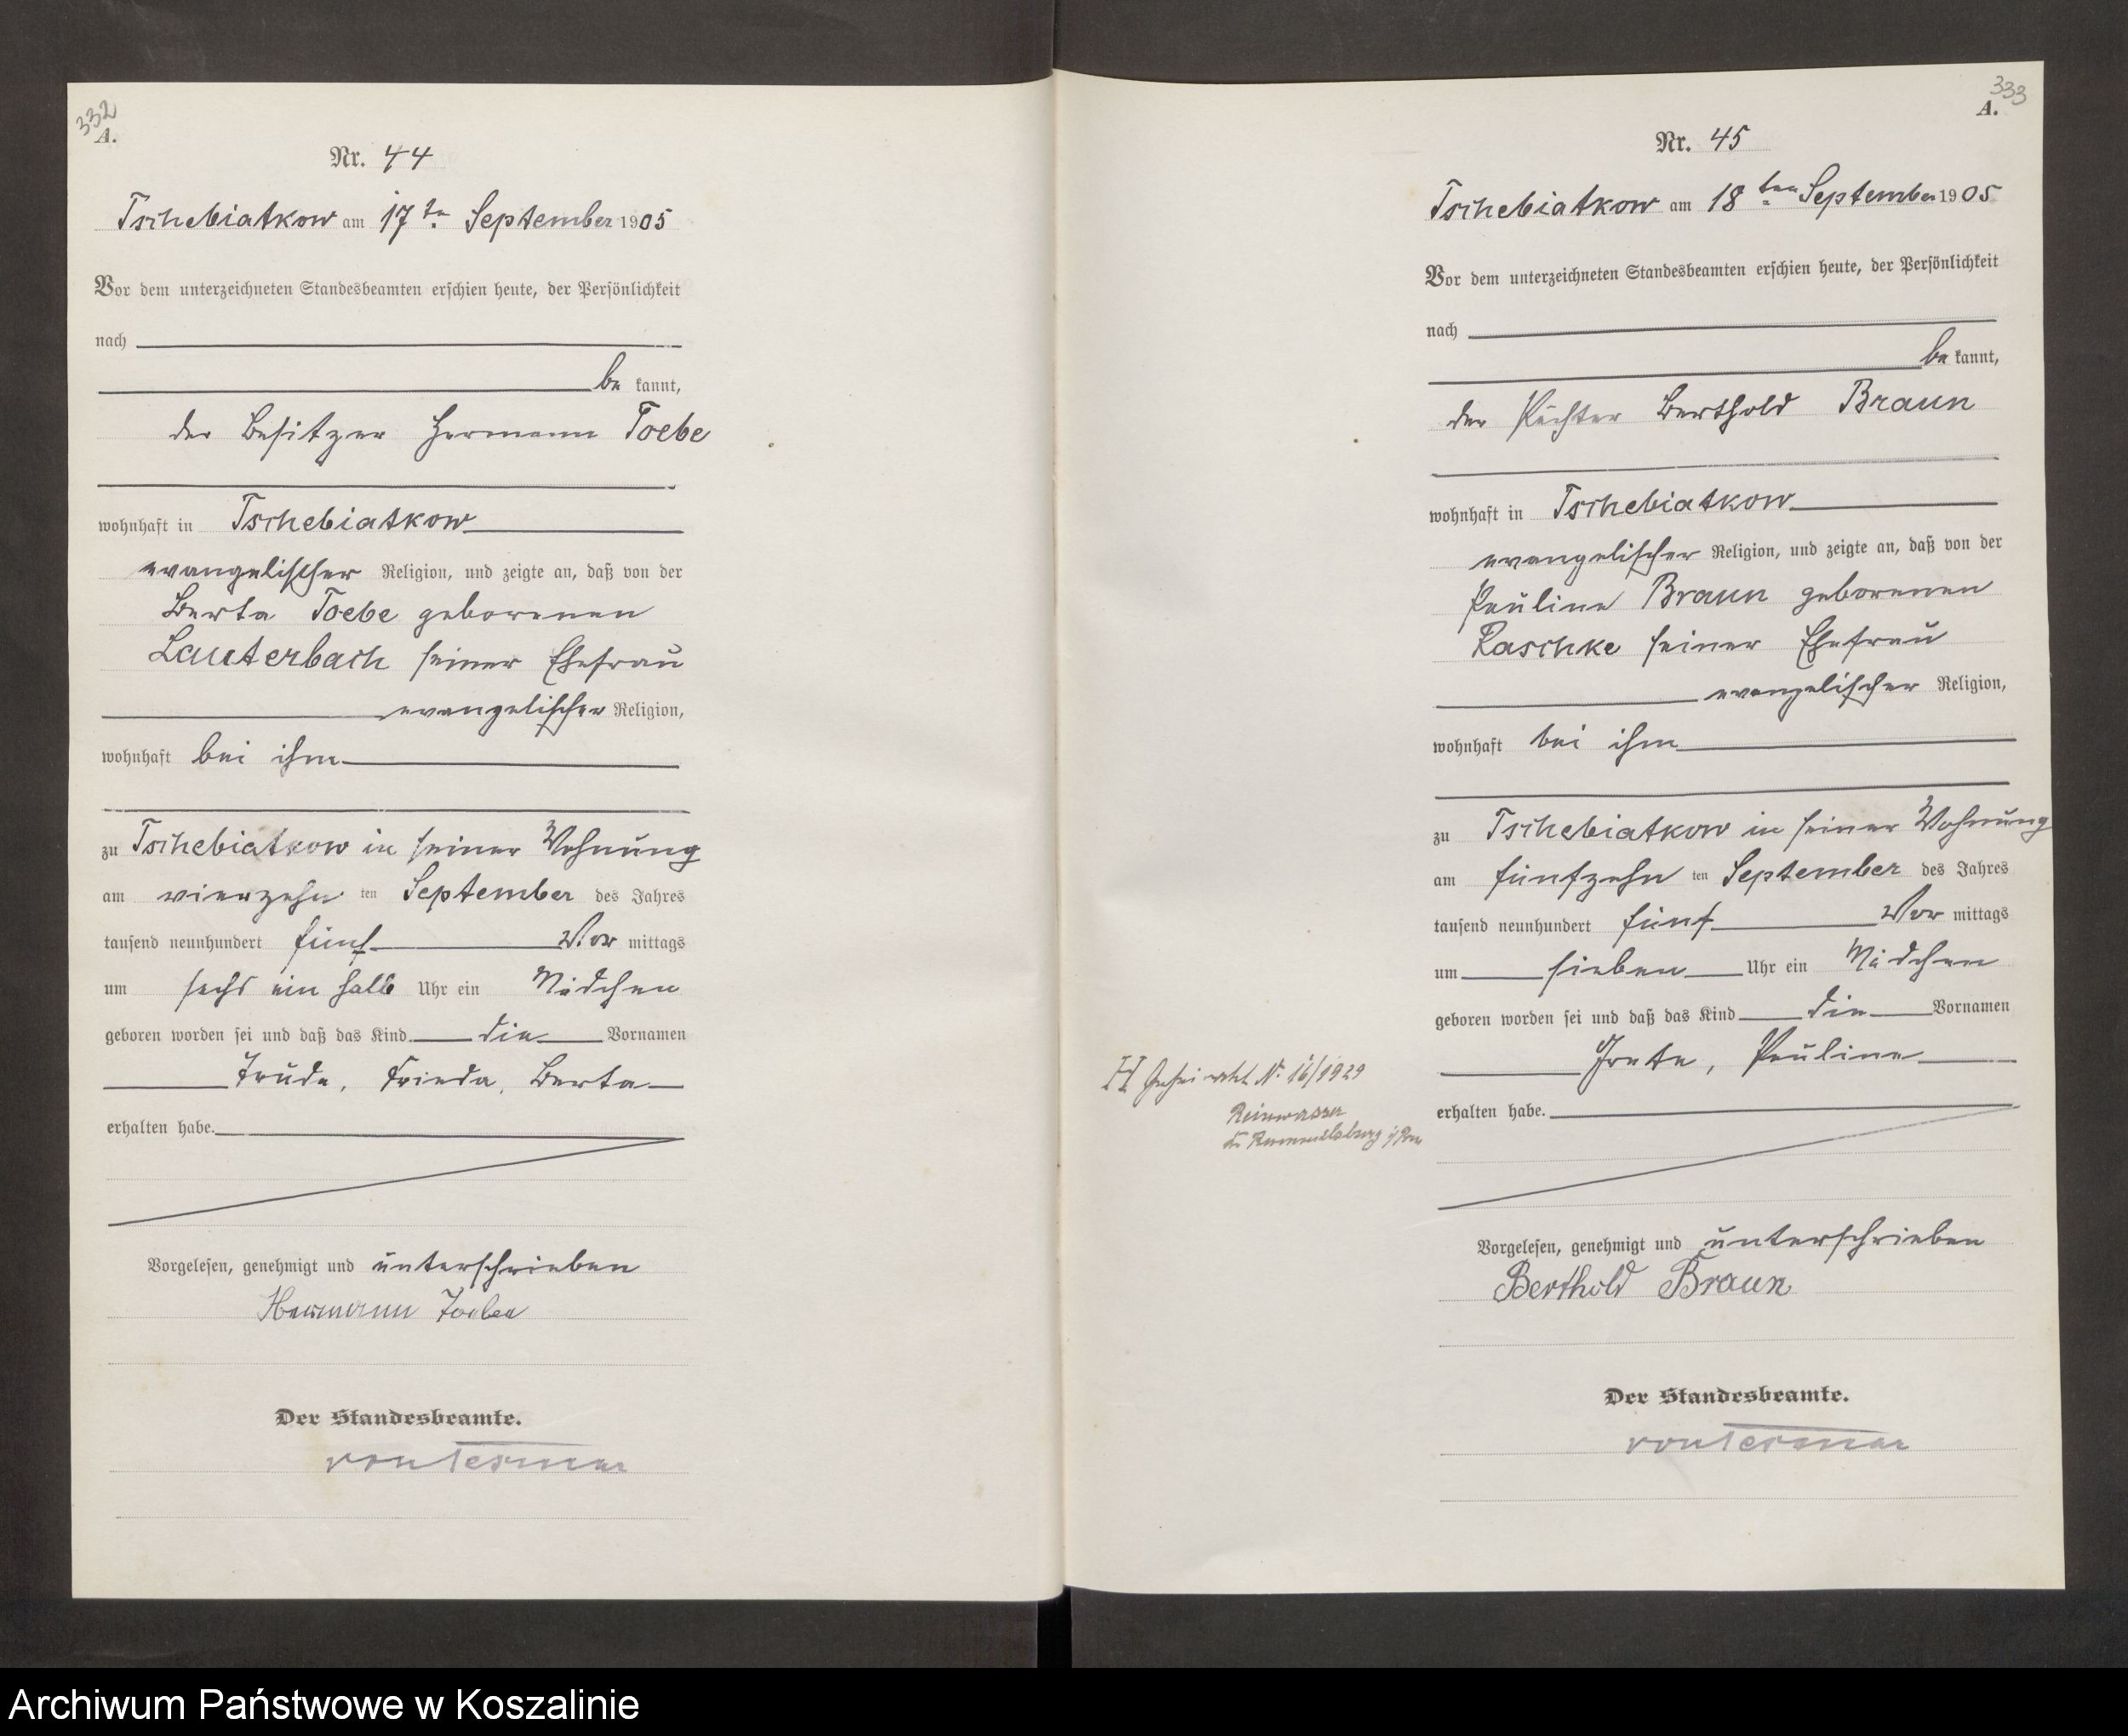 332
A.
Nr. 44
Tschebiatkow am 17ten September 1905
Vor dem unterzeichneten Standesbeamten erschien heute, der Persönlichkeit
nach
be kannt,
der Besitzer Hermann Toebe
wohnhaft in Tschebiatkow
evangelischer Religion, und zeigte an, daß von der
Berta Toebe geborenen
Lauterbach seiner Ehefrau
evangelischer Religion,
wohnhaft bei ihm
zu Tschebiatkow in seiner Wohnung
am vierzehn ten September des Jahres
tausend neunhundert fünf Vor mittags
um sechs ein halb Uhr ein Mädchen
geboren worden sei und daß das Kind die Vornamen
Trude, Frieda, Berta
erhalten habe.
Vorgelesen, genehmigt und unterschrieben
Hermann Toebe
Der Standesbeamte.
333
A.
Nr. 45
Tschebiatkow am 18ten September 1905
Vor dem unterzeichneten Standesbeamten erschien heute, der Persönlichkeit
nach
be kannt,
der Pächter Berthold Braun
wohnhaft in Tschebiatkow
evangelischer Religion, und zeigte an, daß von der
Pauline Braun geborenen
Raschke seiner Ehefrau
evangelischer Religion,
wohnhaft bei ihm
zu Tschebiatkow in seiner Wohnung
am fünfzehn ten September des Jahres
tausend neunhundert fünf Vor mittags
um sieben Uhr ein Mädchen
geboren worden sei und daß das Kind die Vornamen
Grete, Pauline
erhalten habe.
H Geheiratet N. 16/1929
Reinwasser
Kr. Rummelsburg i/Pom
Vorgelesen, genehmigt und unterschrieben
Berthold Braun
Der Standesbeamte.
Archiwum Państwowe w Koszalinie